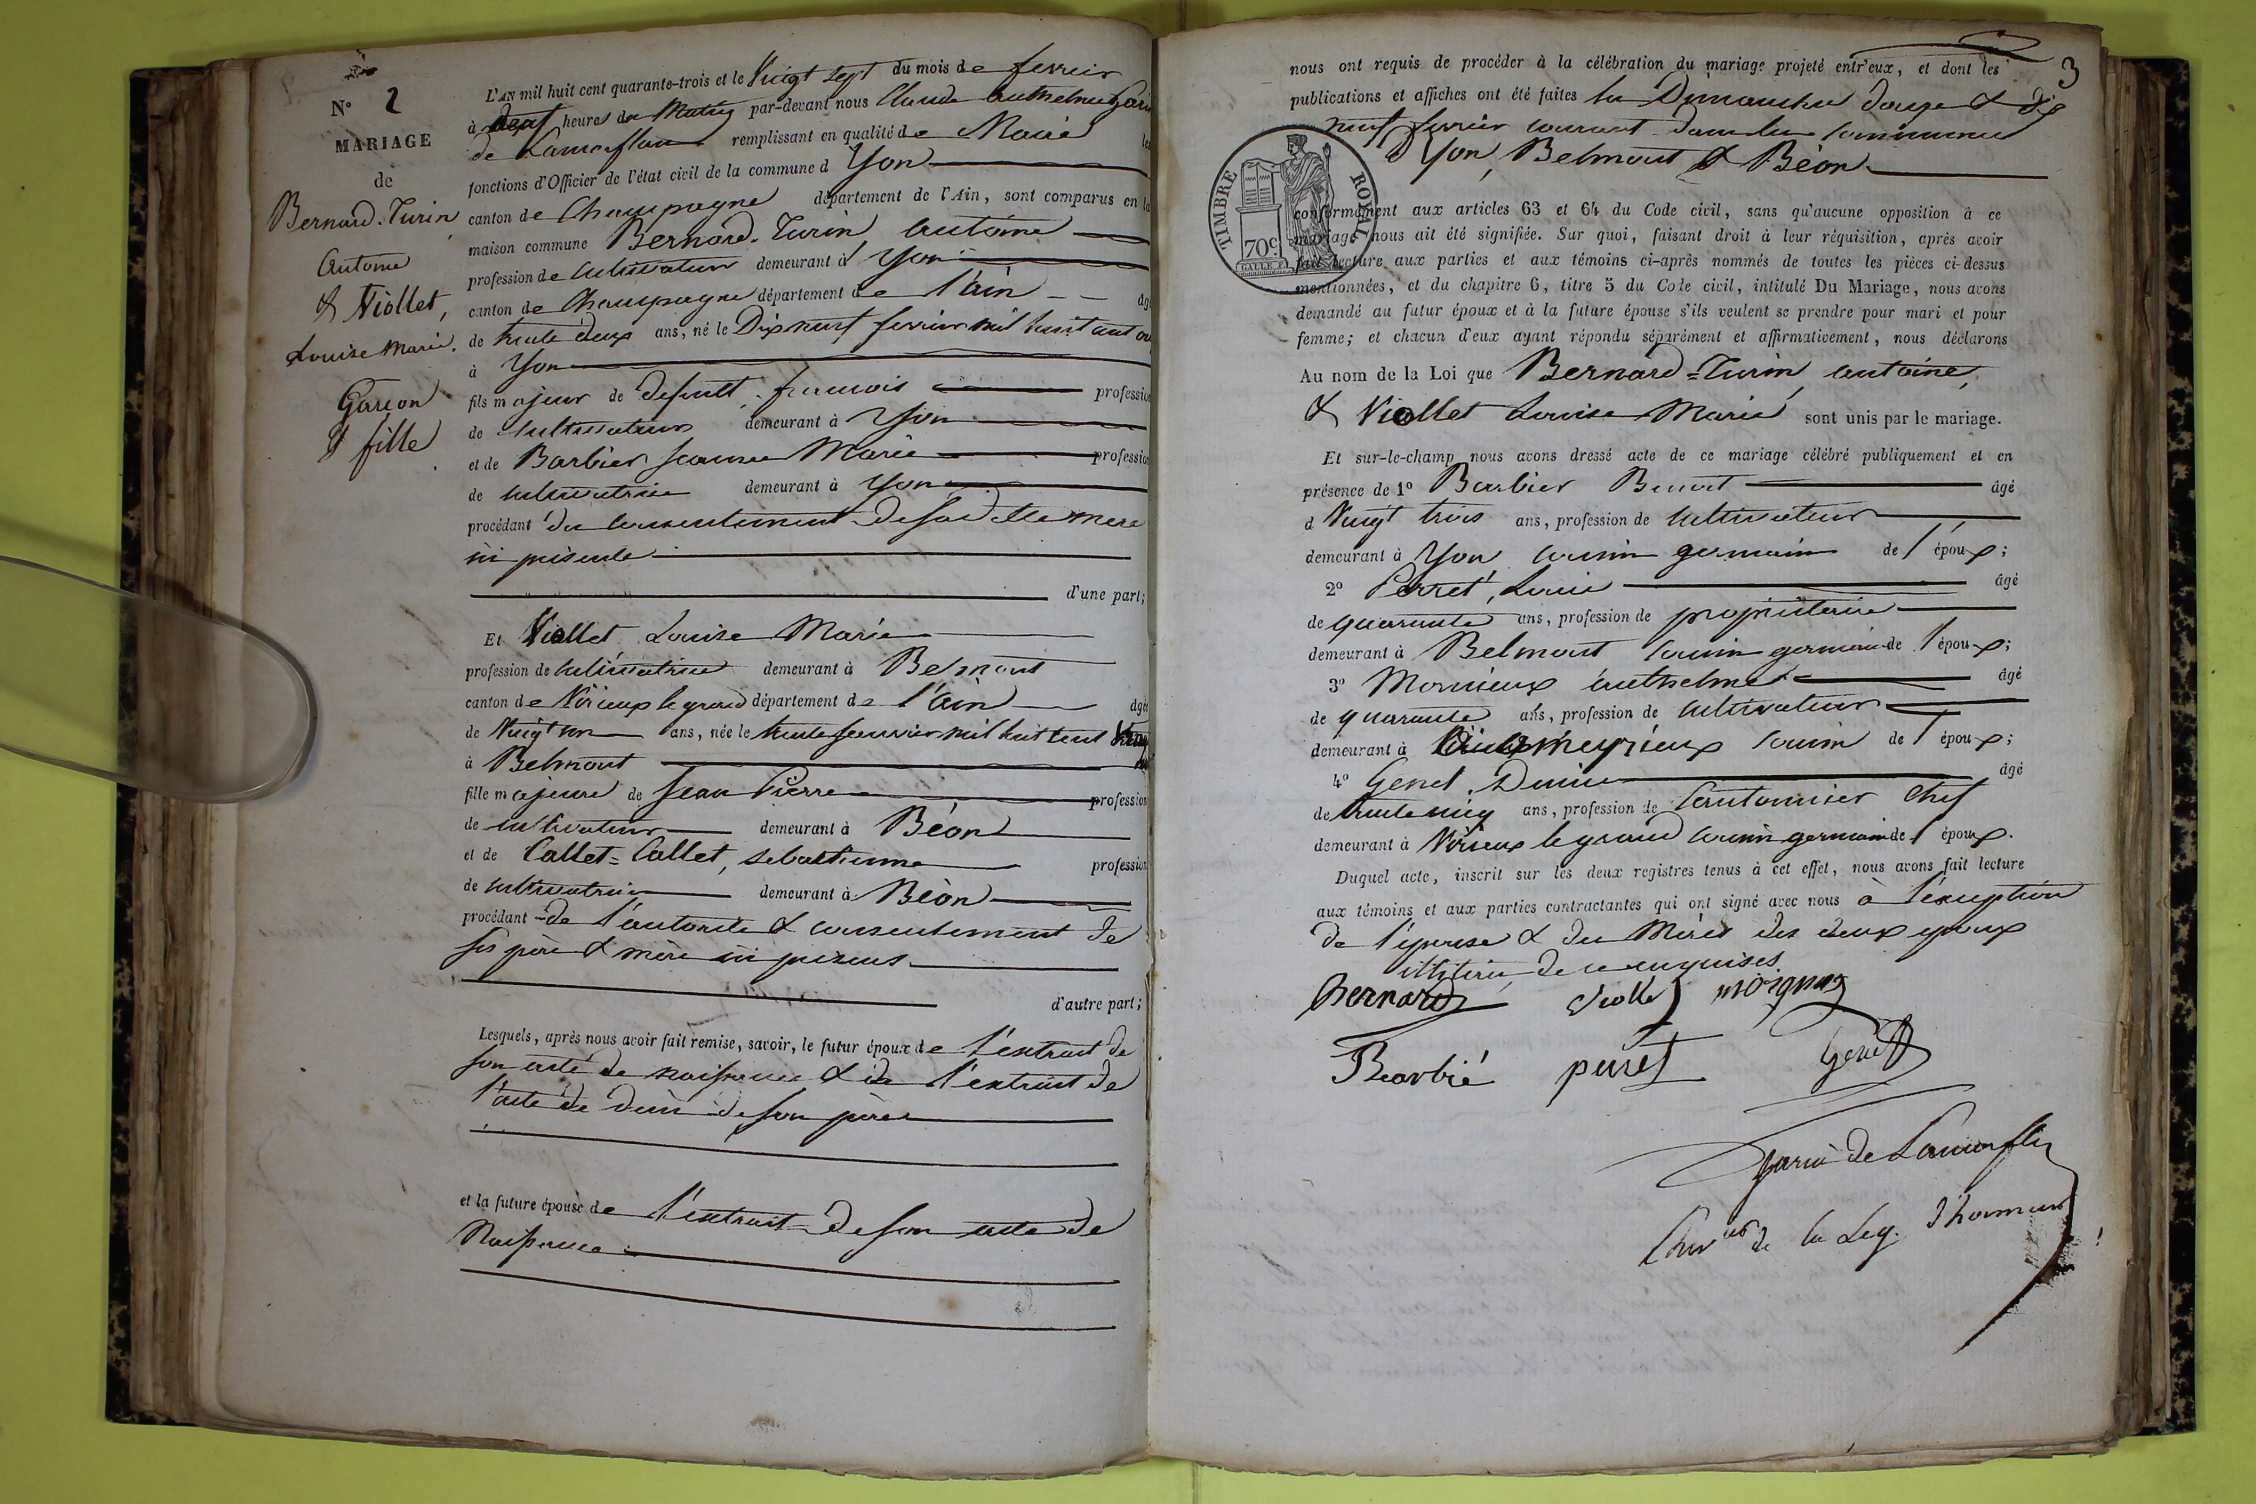 N° 2
MARIAGE
de
Bernard-Turin
Antoine
& Viollet,
Louise Marie.
Garçon
& fille
L'AN mil huit cent quarante-trois et le Vingt sept du mois de fevrier
à heure du Matin par-devant nous Claude Anthelme
de remplissant en qualité de Maire les
fonctions d'Officier de l'état civil de la commune d Yon
canton de Champagne département de l'Ain, sont comparus en la
maison commune Bernard-Turin Antoine
profession de cultivateur demeurant à Yon
canton de Champagne département de l'ain âgé
de trente deux ans, né le Dix neuf fevrier mil huit cent
à Yon
fils majeur de Defunt, francois profession
de cultivateur demeurant à Yon
et de Barbier Jeanne Marie profession
de cultivatrice demeurant à Yon
procédant du consentement de sa ditte mere
ici présente
d'une part;
Et Viollet Louise Marie
profession de cultivatrice demeurant à Belmont
canton de Virieux le grand département de l'ain âgée
de Vingt un ans, née le trente Janvier mil huit cent
à Belmont
fille majeure de Jean Pierre profession
de cultivateur demeurant à Béon
et de Callet=Callet, sebastienne profession
de cultivatrice demeurant à Béon
procédant de l'autorite & consentement de
ses père & mère ici presens
d'autre part;
Lesquels, après nous avoir fait remise, savoir, le futur époux de l'extrait de
son acte de naissance & de l'extrait de
l'acte de décès de son père
et la future épouse de l'extrait de son acte de
Naissance
3
nous ont requis de procéder à la célébration du mariage projeté entr'eux, et dont les
publications et affiches ont été faites les Dimanches douze & dix
neuf fevrier courant dans les communes
d'Yon, Belmont & Béon
TIMBRE ROYAL
70 c.
conformément aux articles 63 et 64 du Code civil, sans qu'aucune opposition à ce
mariage nous ait été signifiée. Sur quoi, faisant droit à leur réquisition, après avoir
fait lecture aux parties et aux témoins ci-après nommés de toutes les pièces ci-dessus
mentionnées, et du chapitre 6, titre 5 du Code civil, intitulé Du Mariage, nous avons
demandé au futur époux et à la future épouse s'ils veulent se prendre pour mari et pour
femme; et chacun d'eux ayant répondu séparément et affirmativement, nous déclarons
Au nom de la Loi que Bernard=Turin, antoine,
& Viollet Louise Marie sont unis par le mariage.
Et sur-le-champ nous avons dressé acte de ce mariage célébré publiquement et en
présence de 1° Barbier Benoit âgé
d Vingt trois ans, profession de cultivateur
demeurant à Yon, cousin germain de l'époux;
2° Perret, Louis âgé
de quarante ans, profession de propriétaire
demeurant à Belmont cousin germain de l'époux;
3° anthelme âgé
de quarante ans, profession de cultivateur
demeurant à cousin de l'époux;
4° Genet, âgé
de trente cinq ans, profession de Cantonnier chef
demeurant à Virieux le grand cousin germain de l'époux.
Duquel acte, inscrit sur les deux registres tenus à cet effet, nous avons fait lecture
aux témoins et aux parties contractantes qui ont signé avec nous à l'exception
de l'épouse & des Mères des deux epoux
de ce enquises
Bernard Violle
Barbié peret Genet
de
Chev de la Leg. d'honneur